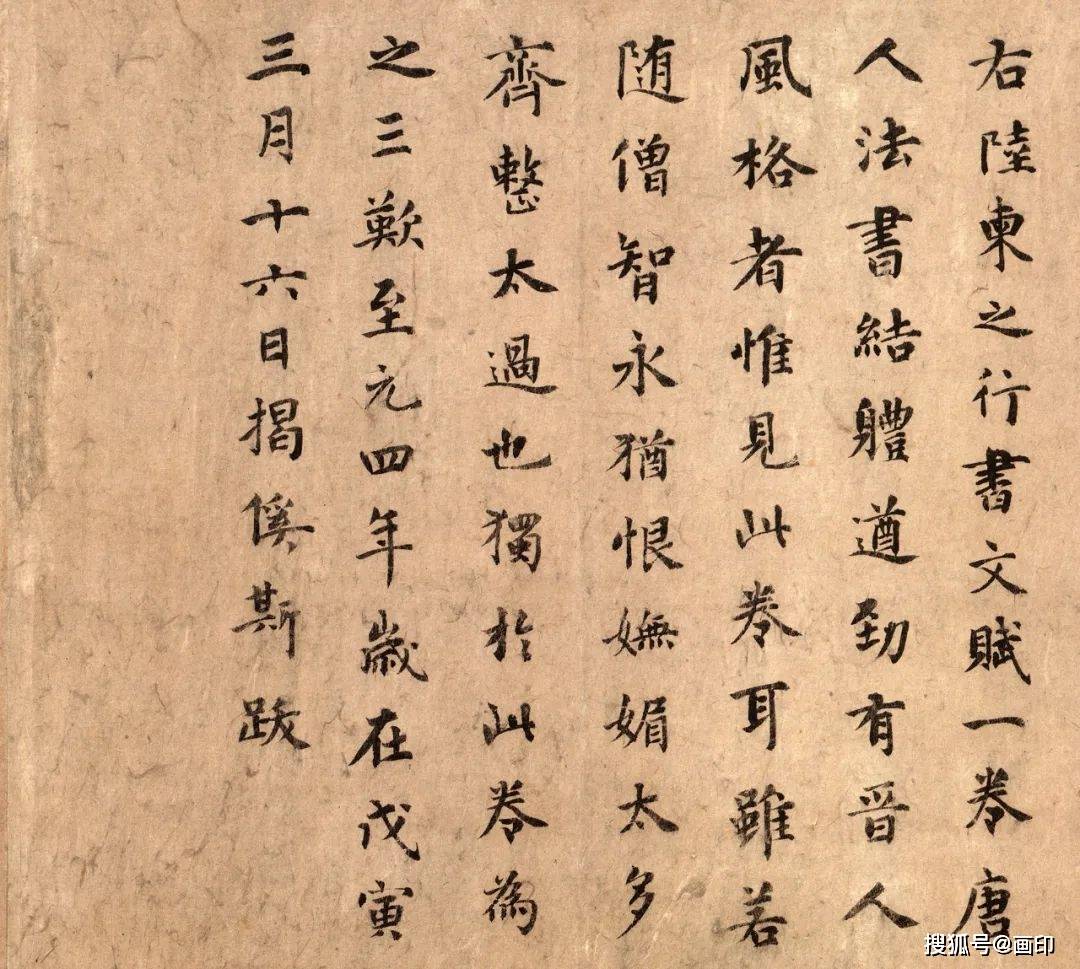 右陸柬之行書文賦一卷唐
人法書結軆遒勁有晉人
風格者惟見此卷耳雖若
随僧智永猶恨嫵媚太多
齊整太過也獨於此卷為
之三歎至元四年歲在戊寅
三月十六日揭傒斯跋
搜狐号@画印